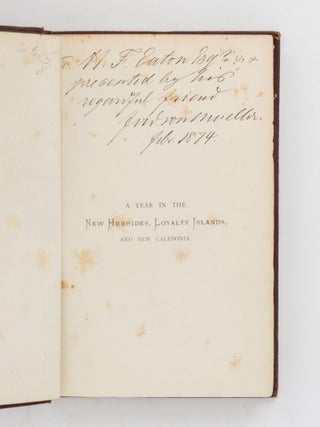 To H. F. Eaton Esqr &c &c
presented by his
regardful friend
Ferd von Mueller.
Feb. 1874.
A YEAR IN THE
NEW HEBRIDES, LOYALTY ISLANDS,
AND NEW CALEDONIA.